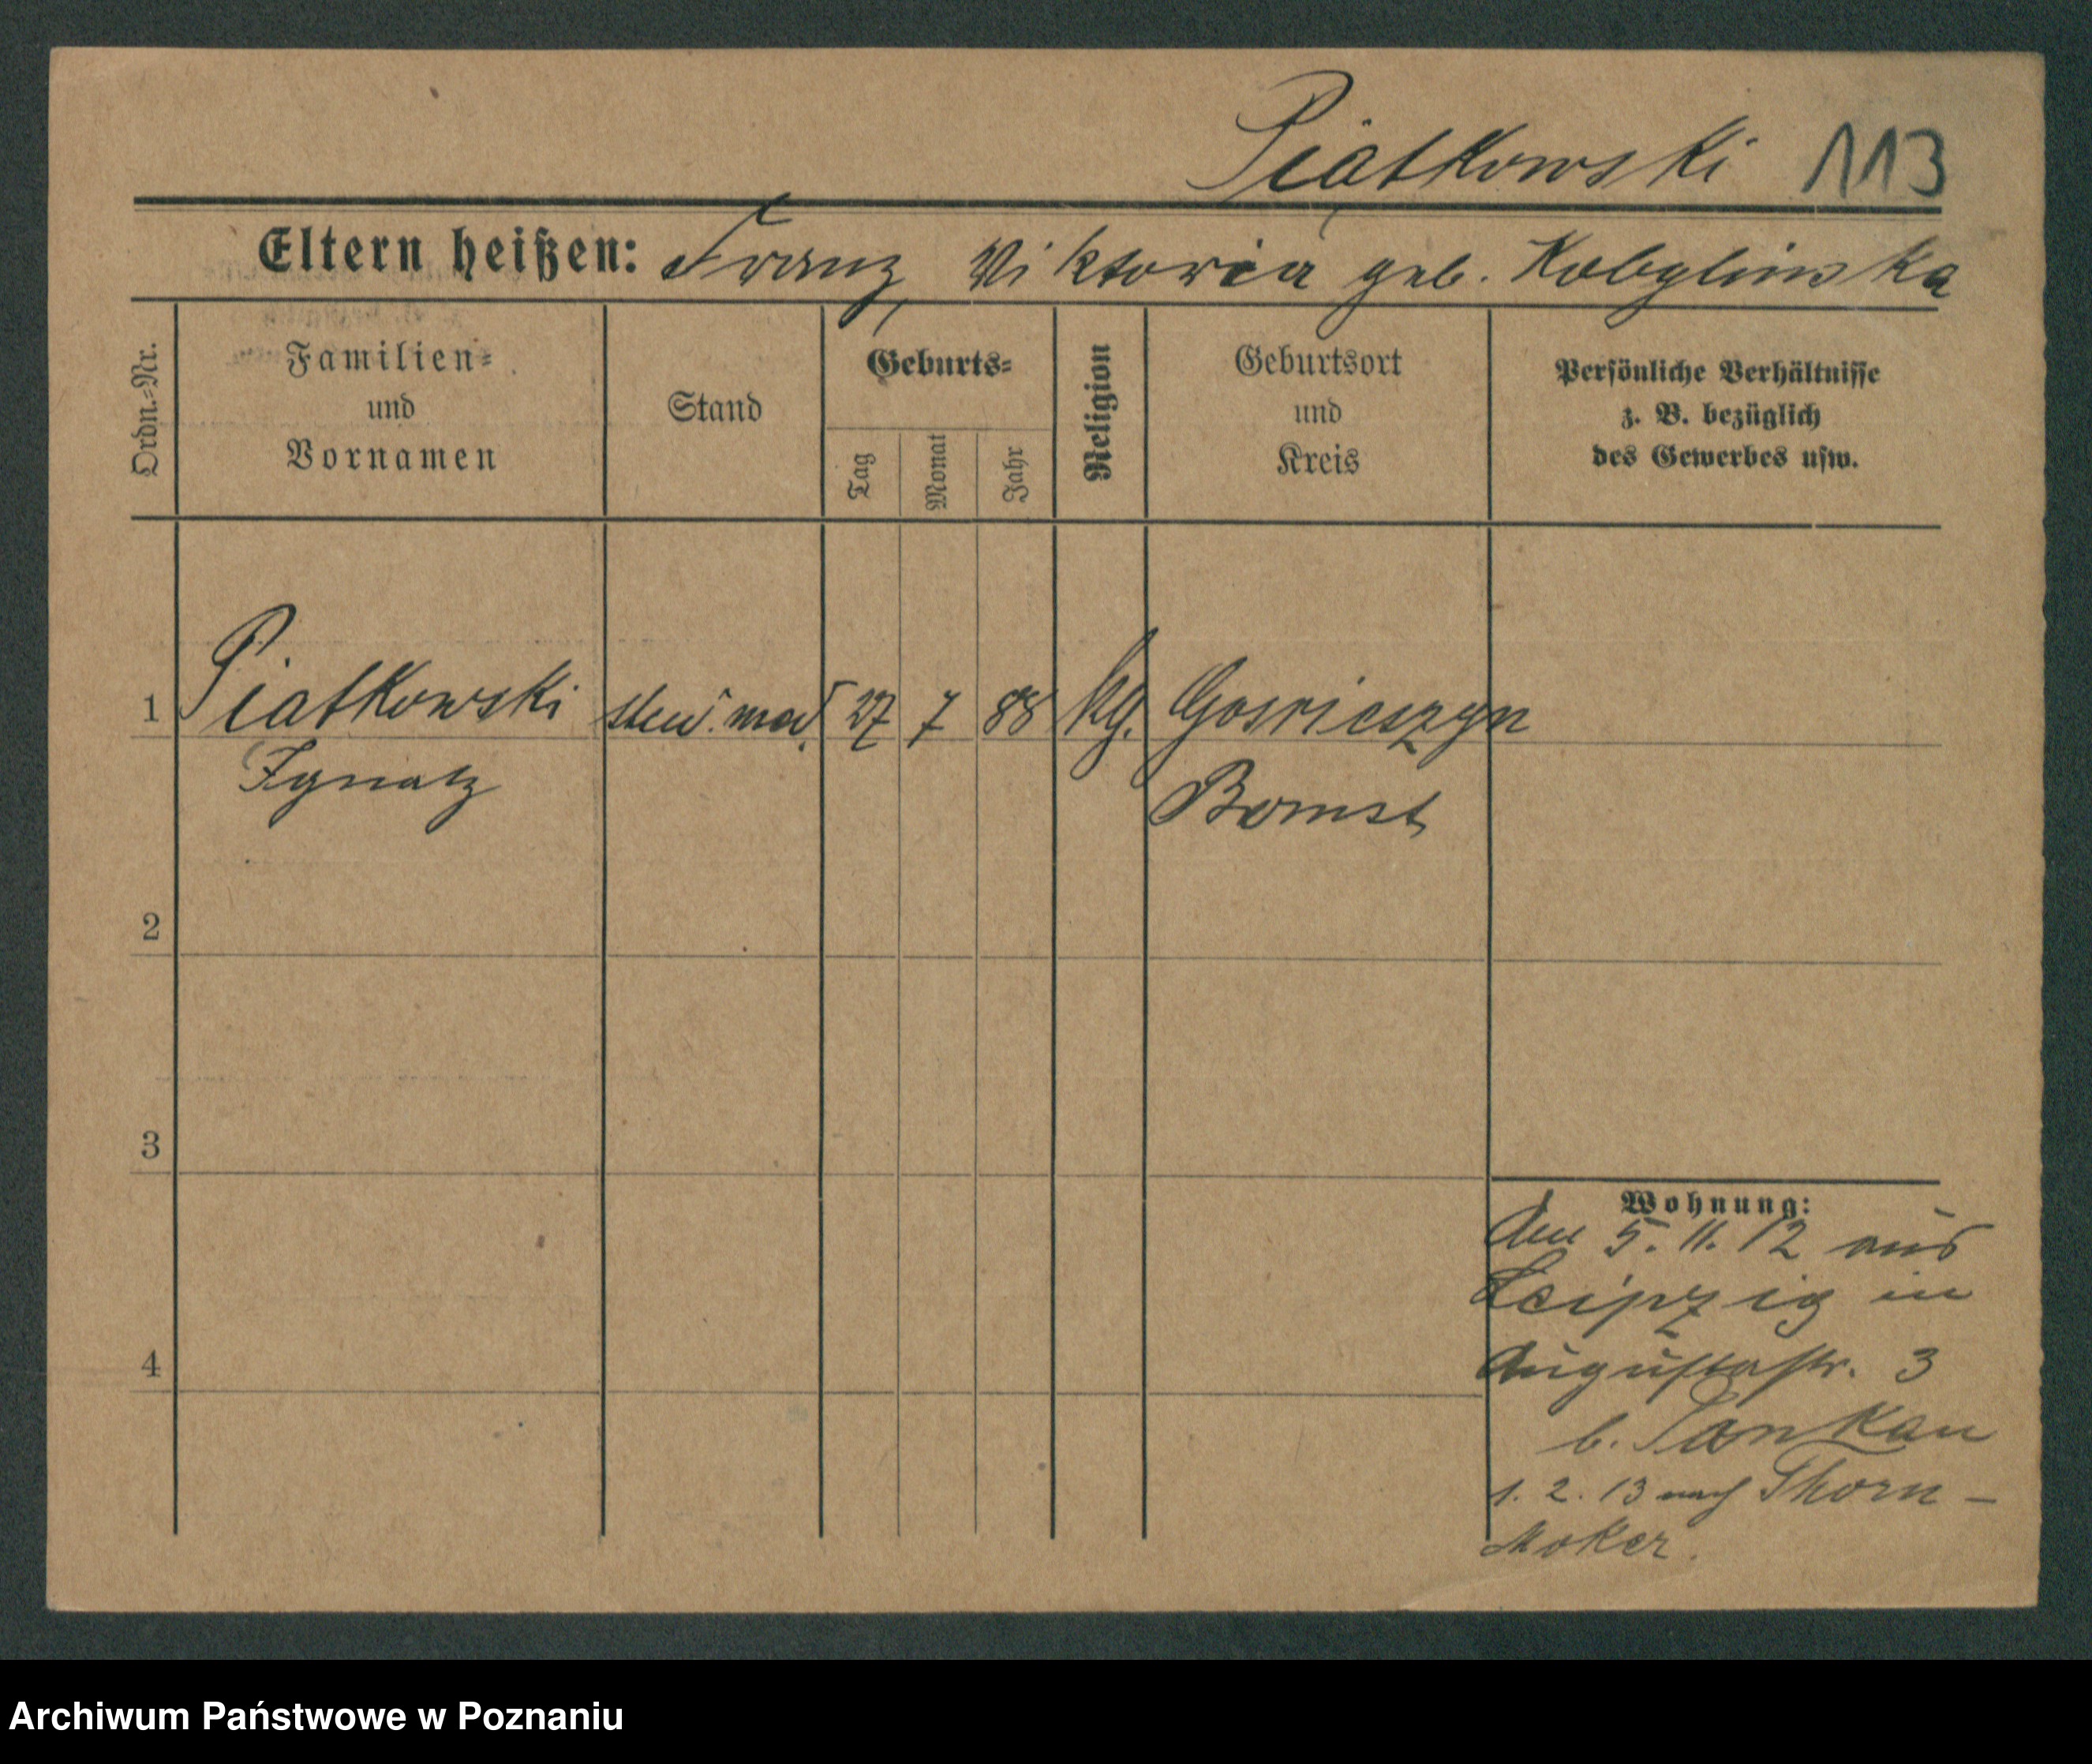 Piatkowski 113
Eltern heißen: Franz, Viktoria geb. Kobylinska
Ordn.-Nr.
Familien-
und
Vornamen
Stand
Geburts-
Tag
Monat
Jahr
Religion
Geburtsort
und
Kreis
Persönliche Verhältnisse
z. B. bezüglich
des Gewerbes usw.
1 Piatkowski stud. med. 27 7 88 Kg. Gosricszyn
Ignatz Bomst
2
3
4
Wohnung:
Am 5. 11. 12 aus
Leipzig in
Augustastr. 3
b. Pankau
1. 2. 13 nach Thorn-
Moker.
Archiwum Państwowe w Poznaniu